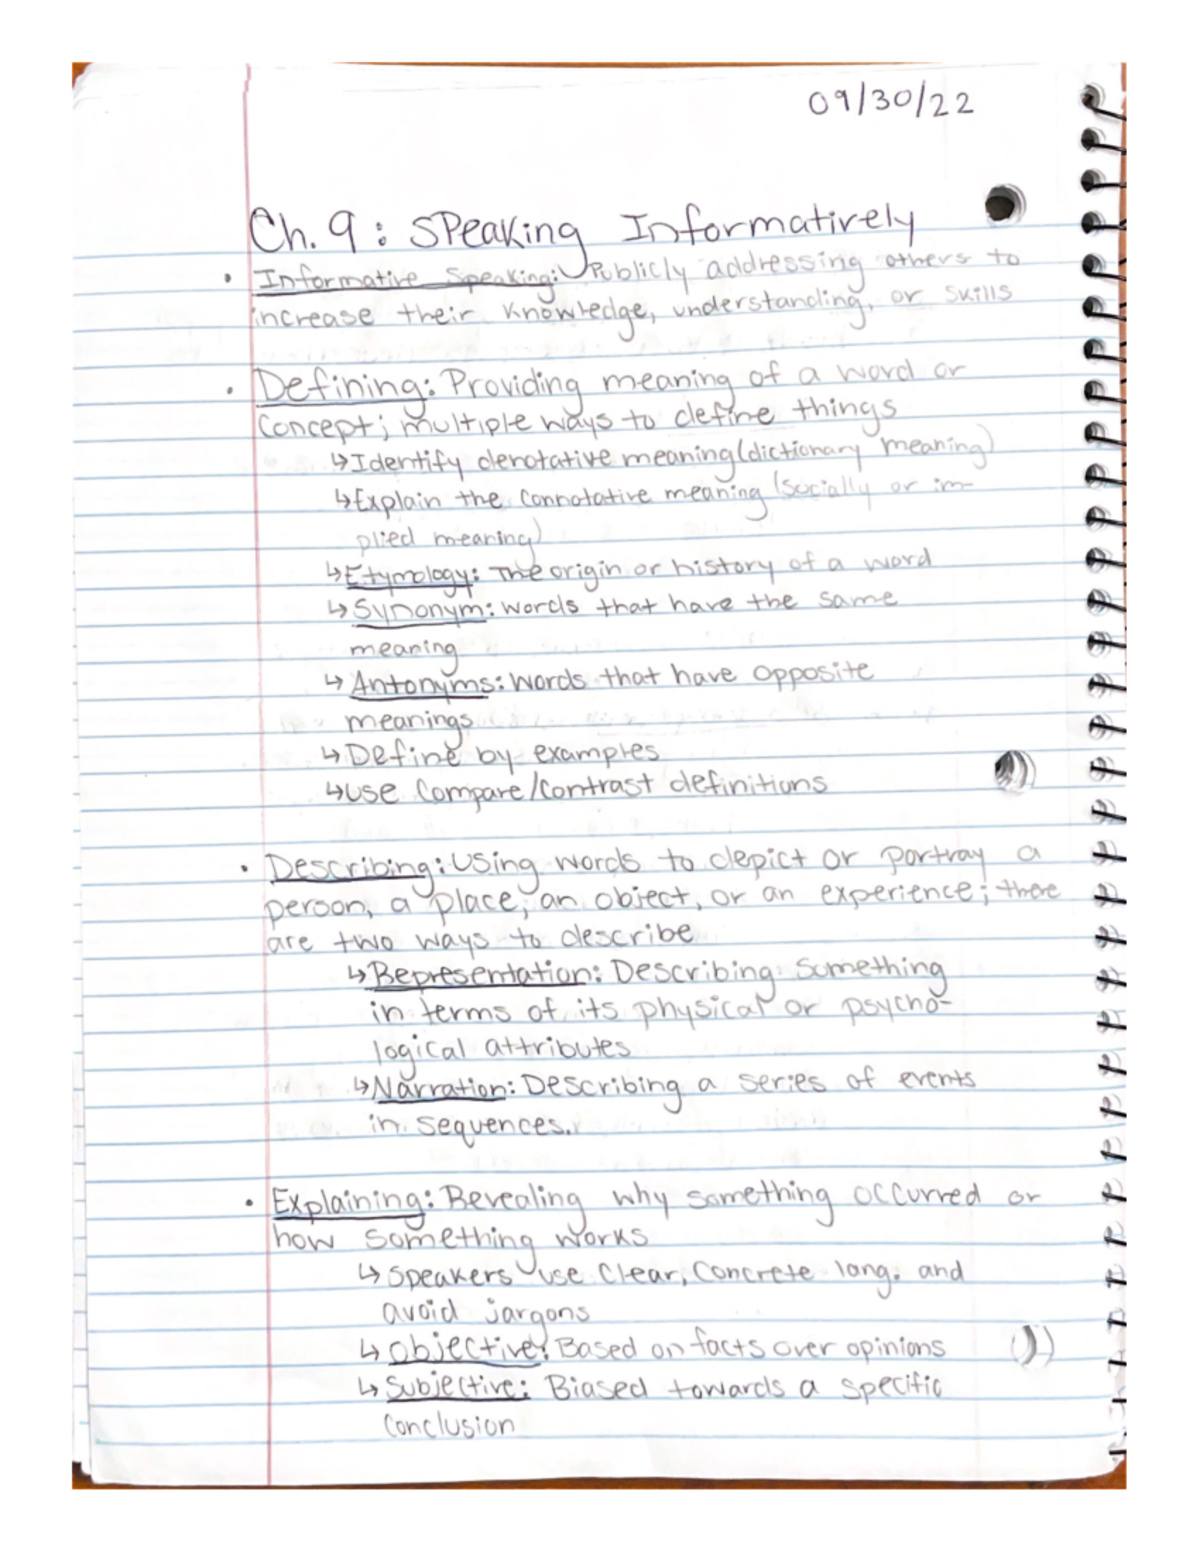 09/30/22
Ch. 9: Speaking Informatively
• Informative Speaking: Publicly addressing others to
increase their knowledge, understanding, or skills
• Defining: Providing meaning of a word or
concept; multiple ways to define things
↳Identify denotative meaning (dictionary meaning)
↳Explain the connotative meaning (socially or im-
plied meaning)
↳Etymology: The origin or history of a word
↳Synonym: words that have the same
meaning
↳Antonyms: Words that have opposite
meanings
↳Define by examples
↳Use compare/contrast definitions
• Describing: Using words to depict or portray a
person, a place, an object, or an experience; there
are two ways to describe
↳Representation: Describing something
in terms of its physical or psycho-
logical attributes
↳Narration: Describing a series of events
in sequences.
• Explaining: Revealing why something occurred or
how something works
↳Speakers use clear, concrete lang. and
avoid jargons
↳Objective: Based on facts over opinions
↳Subjective: Biased towards a specific
conclusion